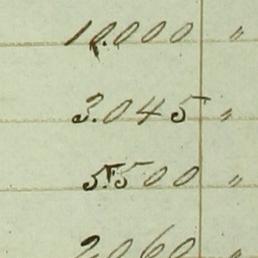 10.000 "
3.045 "
5.500 "
2060 "